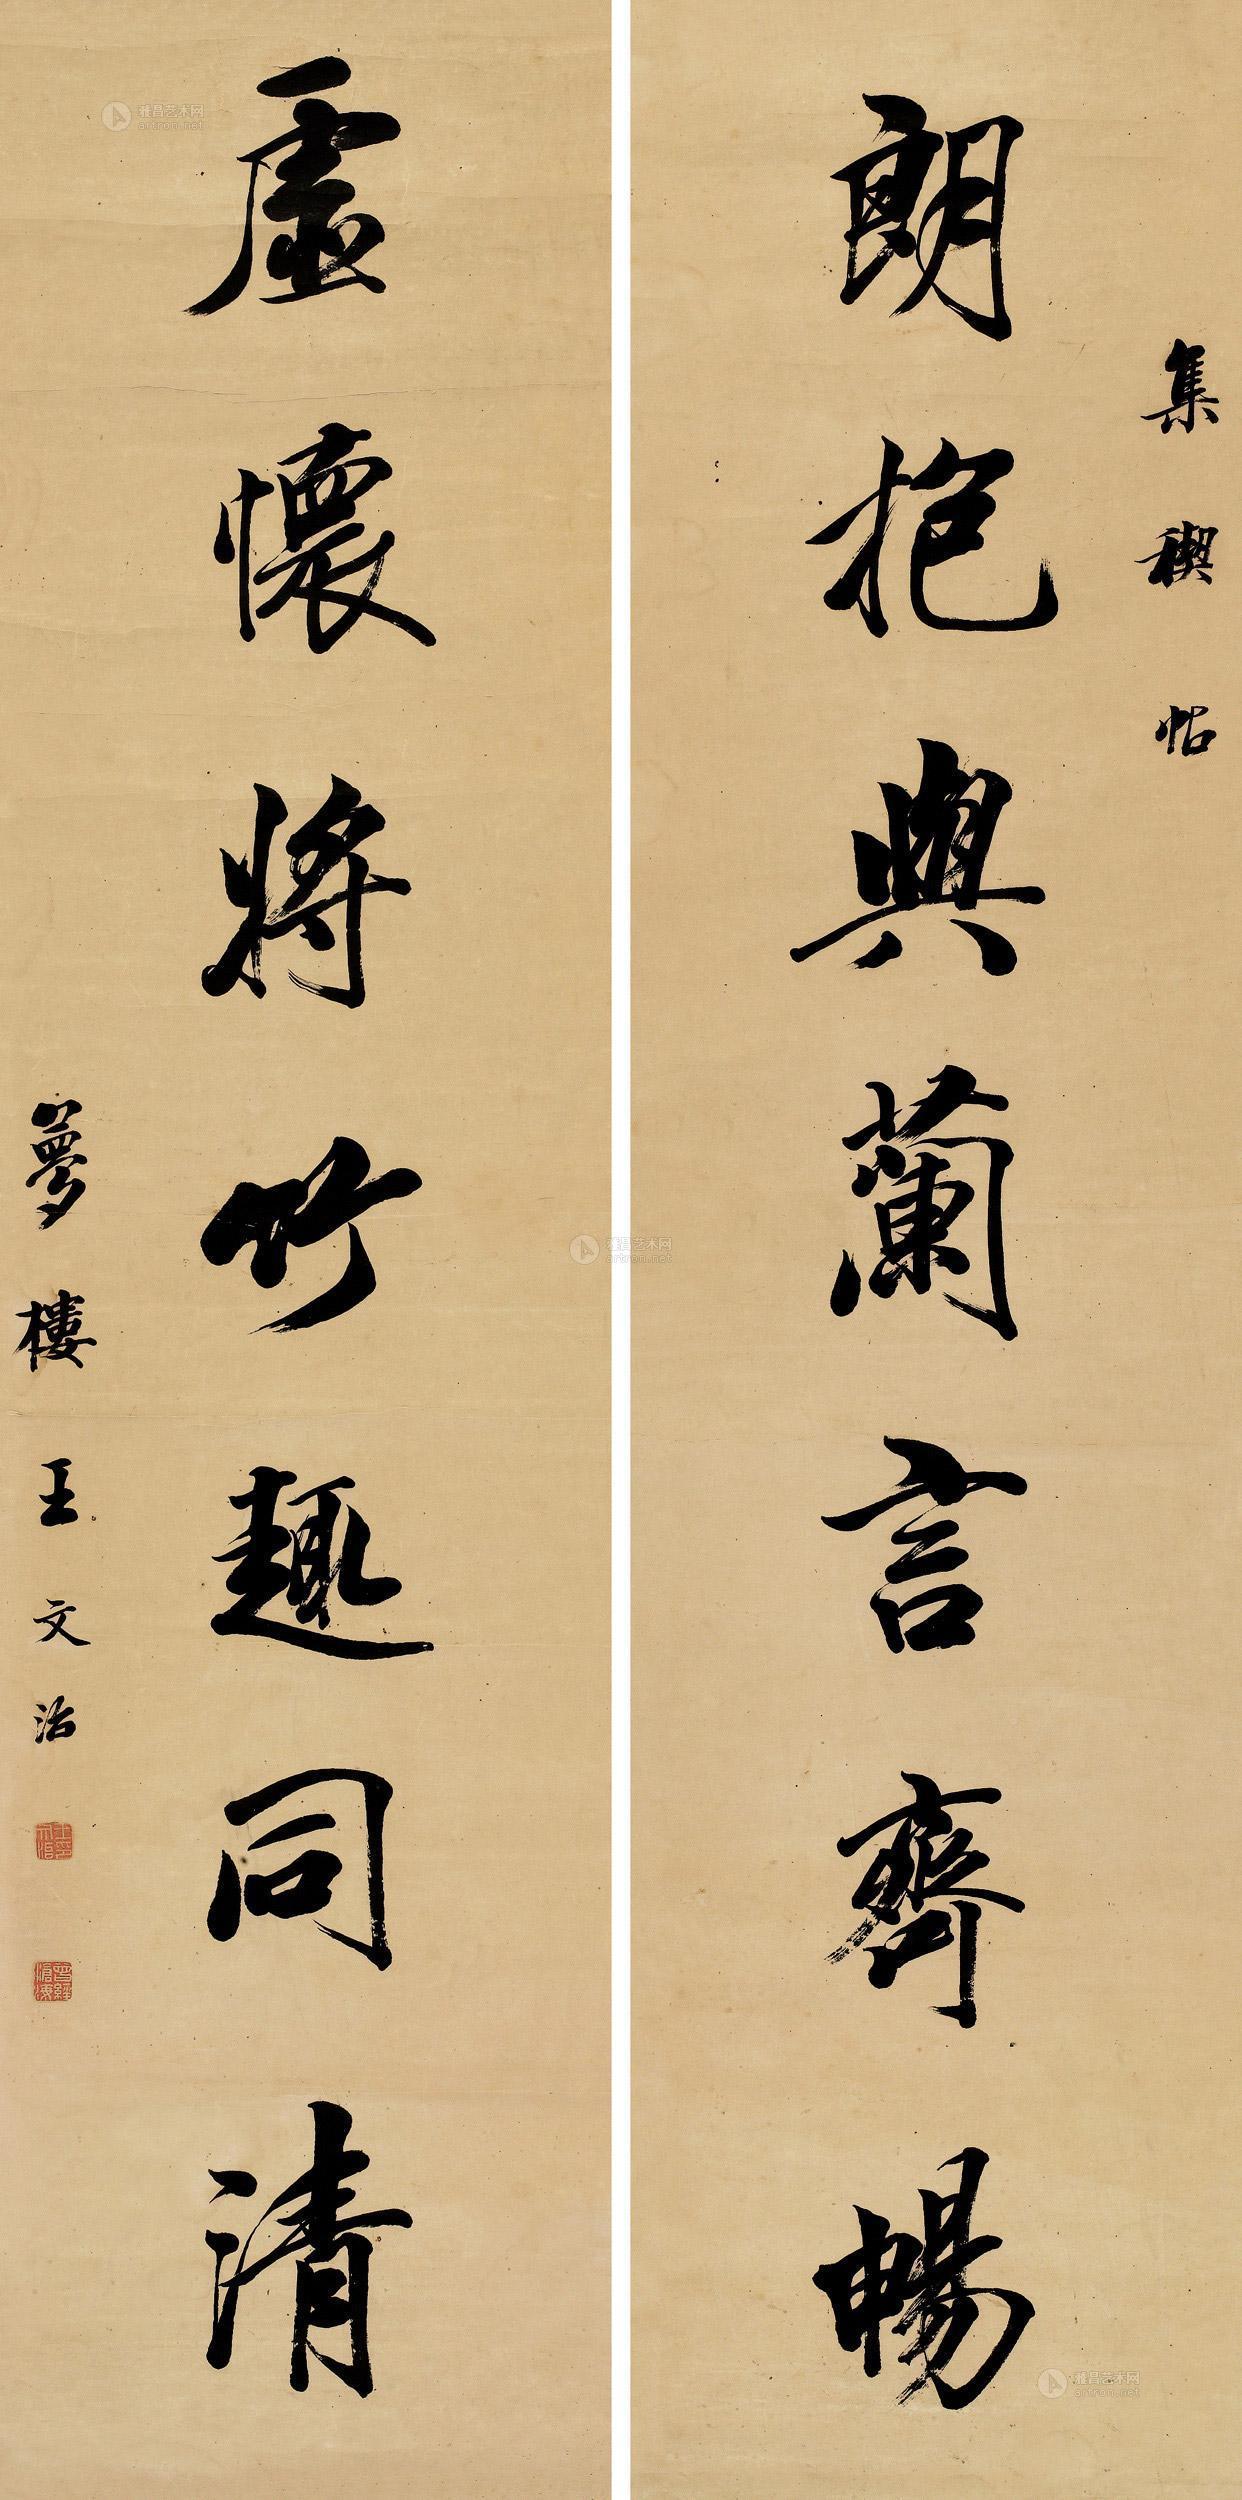 集禊帖
朗抱與蘭言齊暢
虛懷將竹趣同清
夢樓王文治
雅昌艺术网
artron.net
雅昌艺术网
artron.net
雅昌艺术网
artron.net